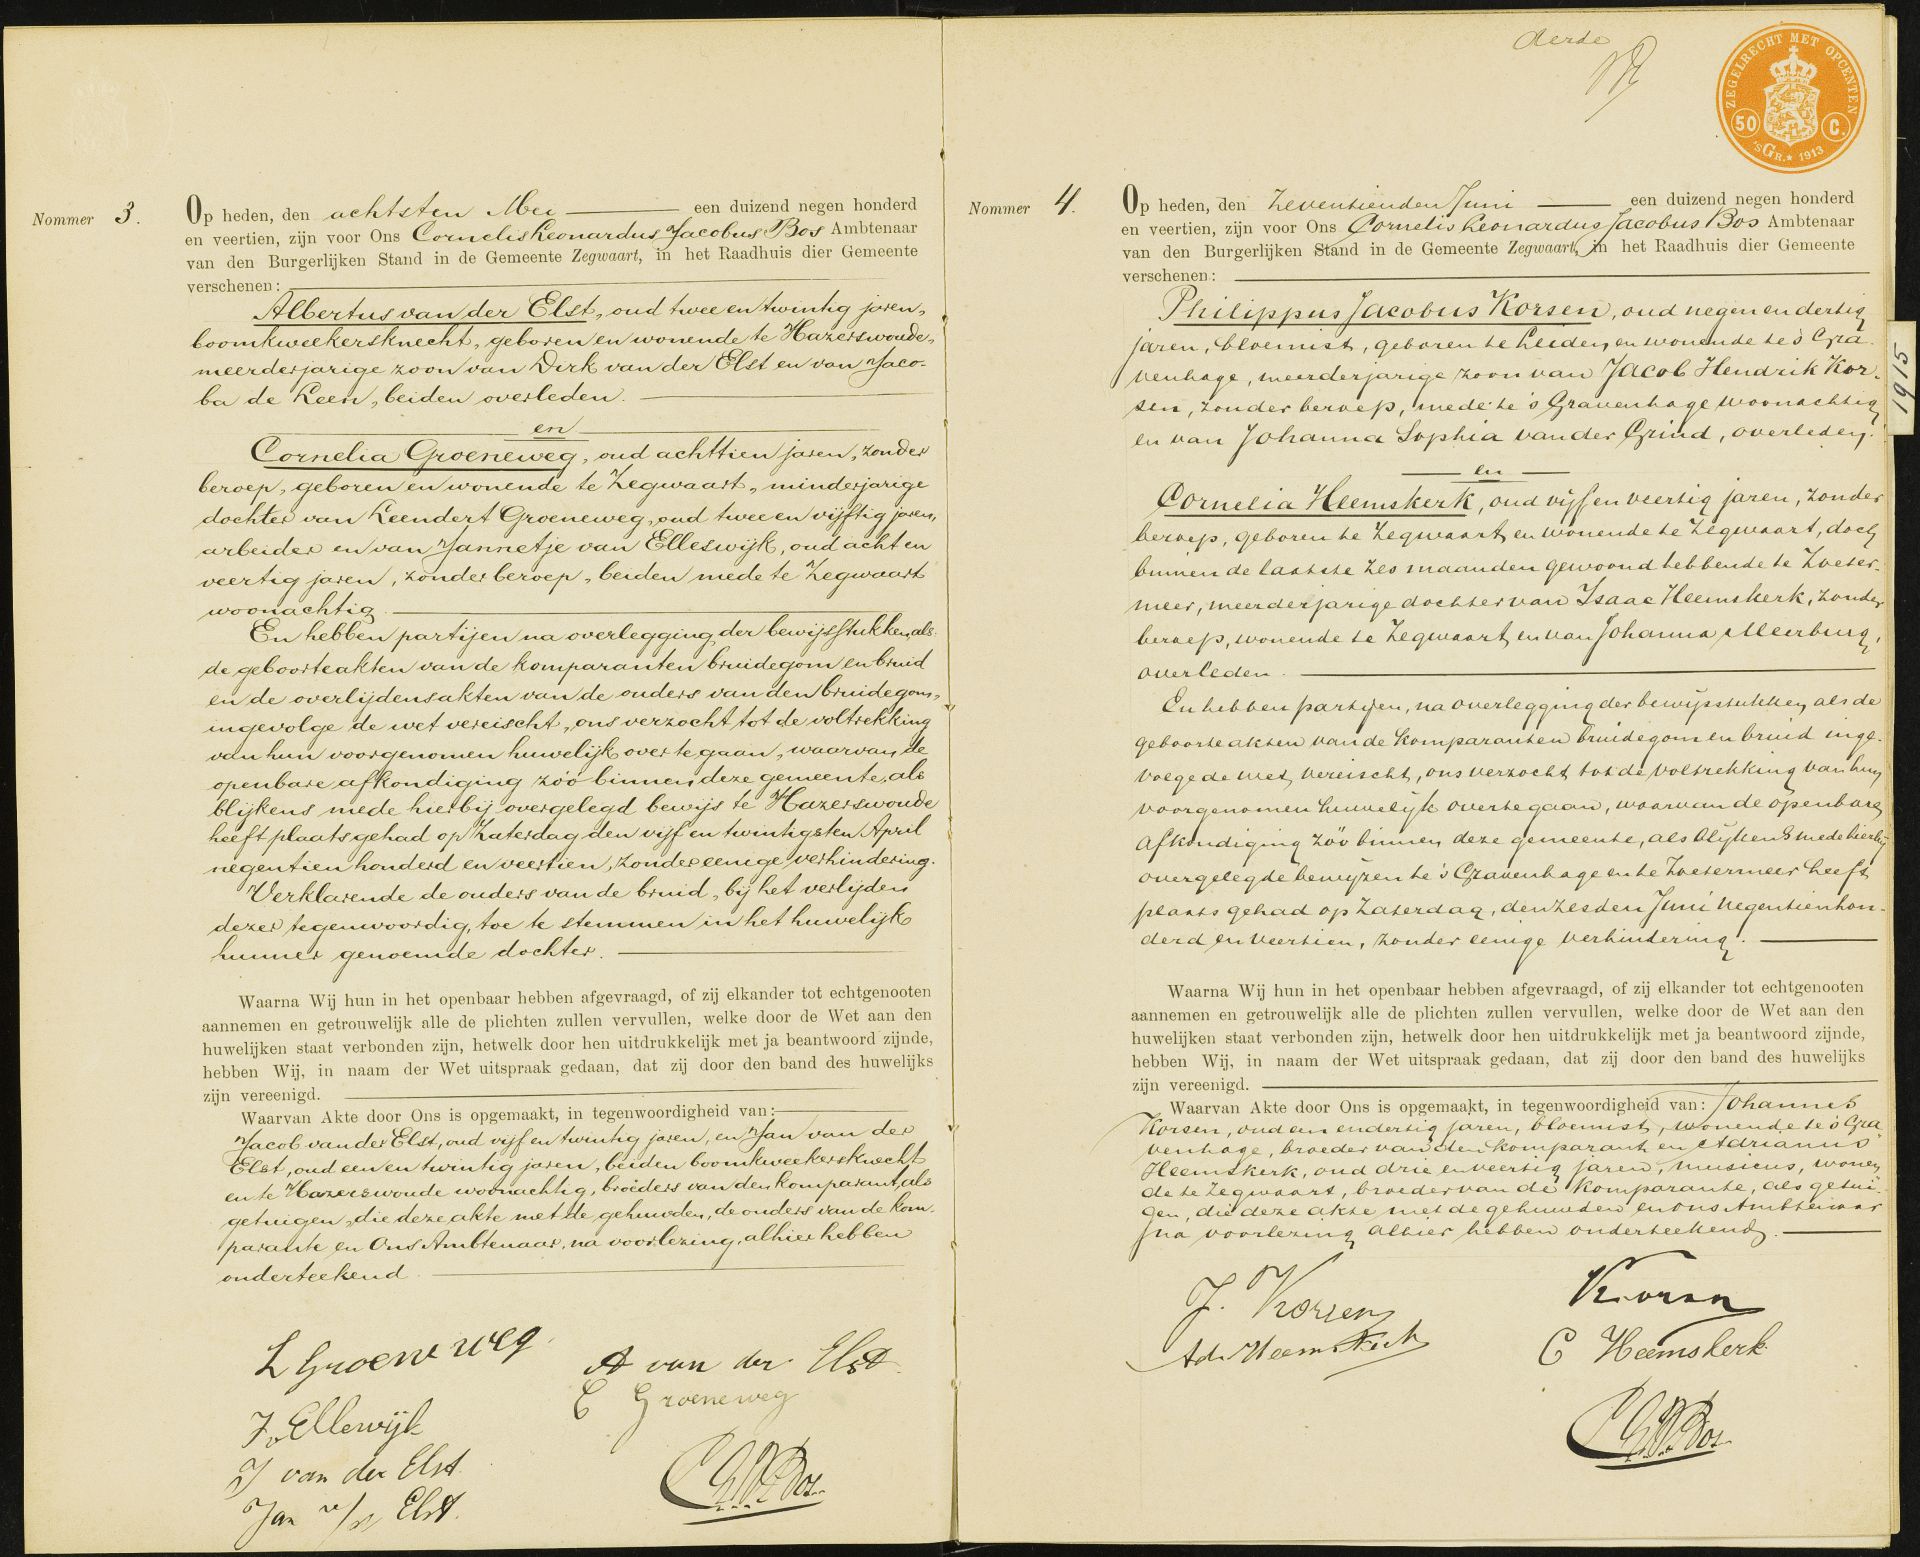 Nommer 3.
Op heden, den achtsten Mei een duizend negen honderd
en veertien, zijn voor Ons Cornelis Leonardus Jacobus Bos Ambtenaar
van den Burgerlijken Stand in de Gemeente Zegwaart, in het Raadhuis dier Gemeente
verschenen:
Albertus van der Elst, oud twee en twintig jaren,
boomkweekersknecht, geboren en wonende te Hazerswoude,
meerderjarige zoon van Dirk van der Elst en van Jaco-
ba de Leen, beiden overleden.
en
Cornelia Groeneweg, oud achttien jaren, zonder
beroep, geboren en wonende te Zegwaart, minderjarige
dochter van Leendert Groeneweg, oud twee en vijftig jaren,
arbeider en van Jannetje van Elleswijk, oud acht en
veertig jaren, zonder beroep, beiden mede te Zegwaart
woonachtig.
En hebben partijen na overlegging der bewijsstukken, als
de geboorteakten van de komparanten bruidegom en bruid
en de overlijdensakten van de ouders van den bruidegom,
ingevolge de wet vereischt, ons verzocht tot de voltrekking
van hun voorgenomen huwelijk over te gaan, waarvan de
openbare afkondiging zóó binnen deze gemeente, als
blijkens mede hierbij overgelegd bewijs te Hazerswoude
heeft plaats gehad op Zaterdag den vijf en twintigsten April
negentien honderd en veertien, zonder eenige verhindering.
Verklarende de ouders van de bruid, bij het verlijden
dezer tegenwoordig, toe te stemmen in het huwelijk
hunner genoemde dochter.
Waarna Wij hun in het openbaar hebben afgevraagd, of zij elkander tot echtgenooten
aannemen en getrouwelijk alle de plichten zullen vervullen, welke door de Wet aan den
huwelijken staat verbonden zijn, hetwelk door hen uitdrukkelijk met ja beantwoord zijnde,
hebben Wij, in naam der Wet uitspraak gedaan, dat zij door den band des huwelijks
zijn vereenigd.
Waarvan Akte door Ons is opgemaakt, in tegenwoordigheid van:
Jacob van der Elst, oud vijf en twintig jaren, en Jan van der
Elst, oud een en twintig jaren, beiden boomkweekersknecht
en te Hazerswoude woonachtig, broeders van den komparant, als
getuigen, die deze akte met de gehuwden, de ouders van de kom-
parante en Ons Ambtenaar, na voorlezing, alhier hebben
onderteekend.
L Groeneweg
A van der Elst
C Groeneweg
J v Ellewijk
J van der Elst
Jan v/d Elst.
CLJ Bos
derde
ZEGELRECHT MET OPCENTEN
50 C.
'sGR. 1913
1915
Nommer 4.
Op heden, den zeventienden Juni een duizend negen honderd
en veertien, zijn voor Ons Cornelis Leonardus Jacobus Bos Ambtenaar
van den Burgerlijken Stand in de Gemeente Zegwaart, in het Raadhuis dier Gemeente
verschenen:
Philippus Jacobus Korsen, oud negen en dertig
jaren, bloemist, geboren te Leiden, en wonende te 's Gra-
venhage, meerderjarige zoon van Jacob Hendrik Kor-
sen, zonder beroep, mede te 's Gravenhage woonachtig
en van Johanna Sophia van der Grind, overleden.
en
Cornelia Heemskerk, oud vijf en veertig jaren, zonder
beroep, geboren te Zegwaart, en wonende te Zegwaart, doch
binnen de laatste zes maanden gewoond hebbende te Zoeter-
meer, meerderjarige dochter van Isaac Heemskerk, zonder
beroep, wonende te Zegwaart, en van Johanna Meerburg,
overleden.
En hebben partijen, na overlegging der bewijsstukken, als de
geboorteakten van de komparanten bruidegom en bruid inge-
volge de wet, vereischt, ons verzocht tot de voltrekking van hun
voorgenomen huwelijk over te gaan, waarvan de openbare
afkondiging zóó binnen deze gemeente, als blijkens mede hierbij
overgelegde bewijzen te 's Gravenhage en te Zoetermeer heeft
plaats gehad op Zaterdag, den zesden Juni negentien hon-
derd en veertien, zonder eenige verhindering.
Waarna Wij hun in het openbaar hebben afgevraagd, of zij elkander tot echtgenooten
aannemen en getrouwelijk alle de plichten zullen vervullen, welke door de Wet aan den
huwelijken staat verbonden zijn, hetwelk door hen uitdrukkelijk met ja beantwoord zijnde,
hebben Wij, in naam der Wet uitspraak gedaan, dat zij door den band des huwelijks
zijn vereenigd.
Waarvan Akte door Ons is opgemaakt, in tegenwoordigheid van: Johannes
Korsen, oud een en dertig jaren, bloemist, wonende te 's Gra-
venhage, broeder van den komparant en Adrianus
Heemskerk, oud drie en veertig jaren, musicus, wonen
de te Zegwaart, broeder van de komparante, als getui-
gen, die deze akte met de gehuwden en ons Ambtenaar
na voorlezing alhier hebben onderteekend.
J. Korsen
Korsen
Ad. Heemskerk
C Heemskerk
CLJ Bos